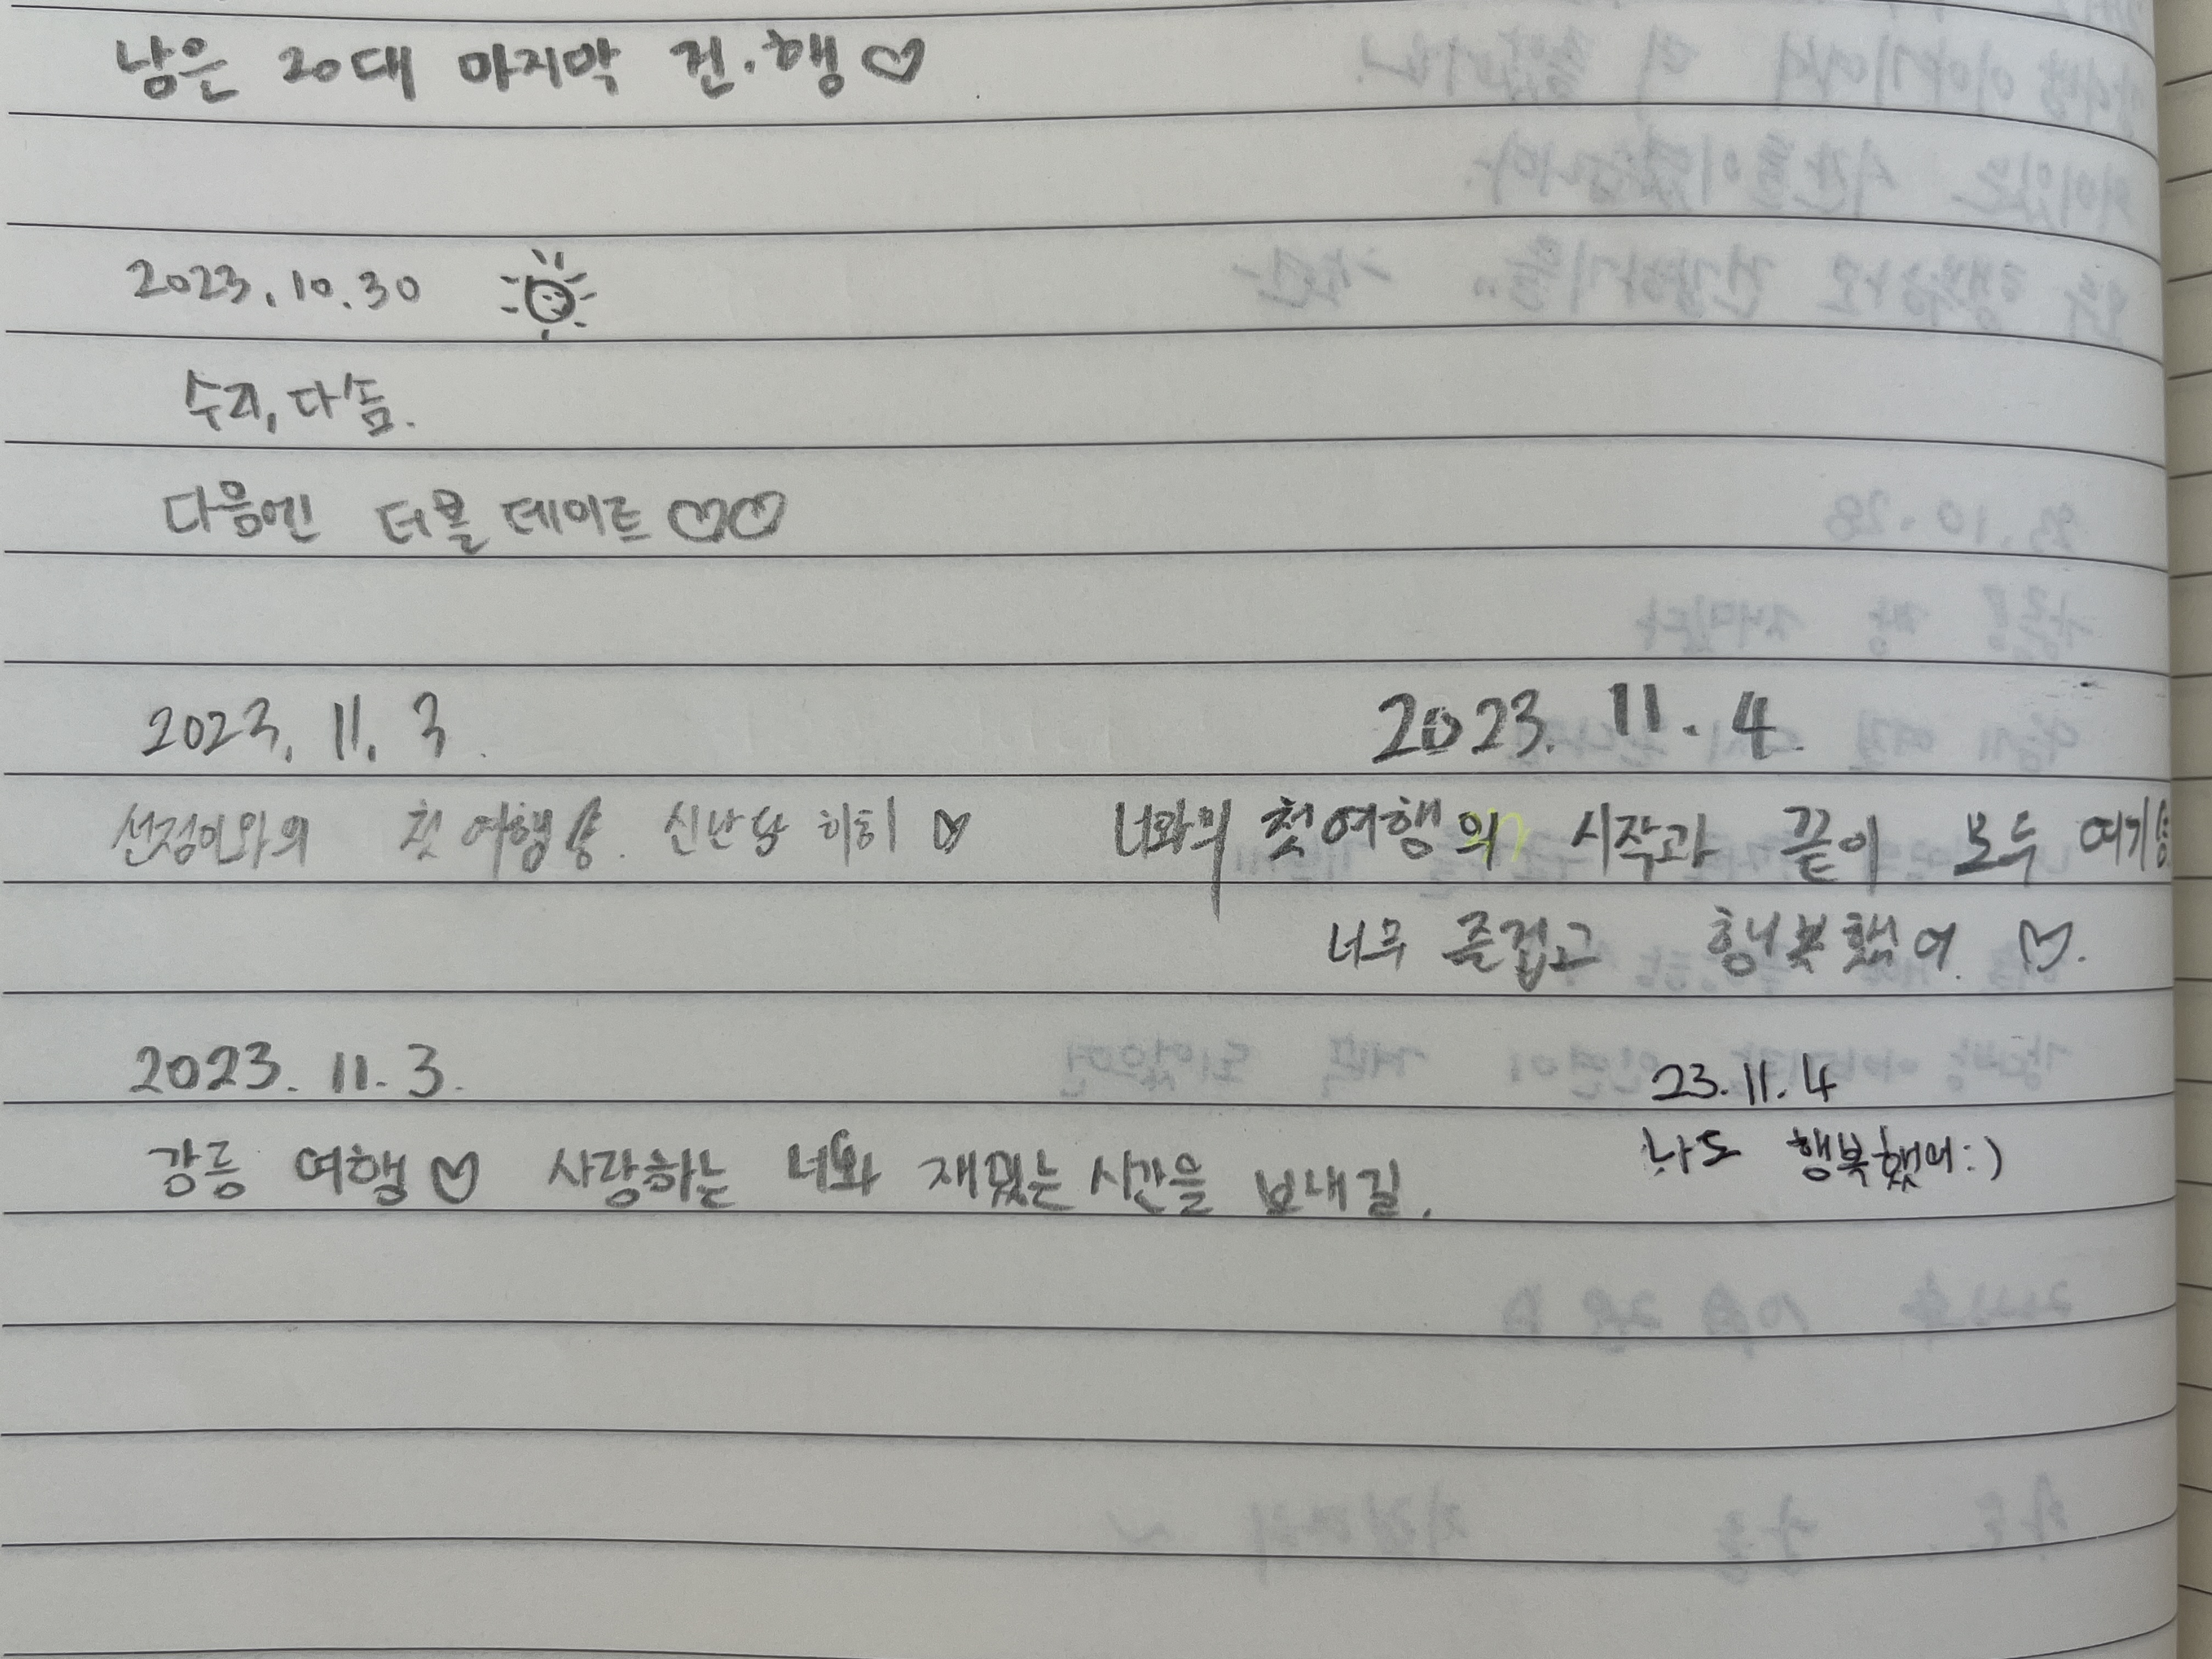 남은 20대 마지막 건.행♡
2023.10.30
수리, 다솜.
다음엔 더블 데이트♡♡
2023. 11. 3.
선정이와의 첫 여행 신난당 히히♡
2023. 11. 4.
너와의 첫여행의 시작과 끝이 모두 여기
너무 즐겁고 행복했어. ♡.
2023. 11. 3.
강릉 여행♡ 사랑하는 너와 재밌는 시간을 보내길.
23. 11. 4
나도 행복했어:)